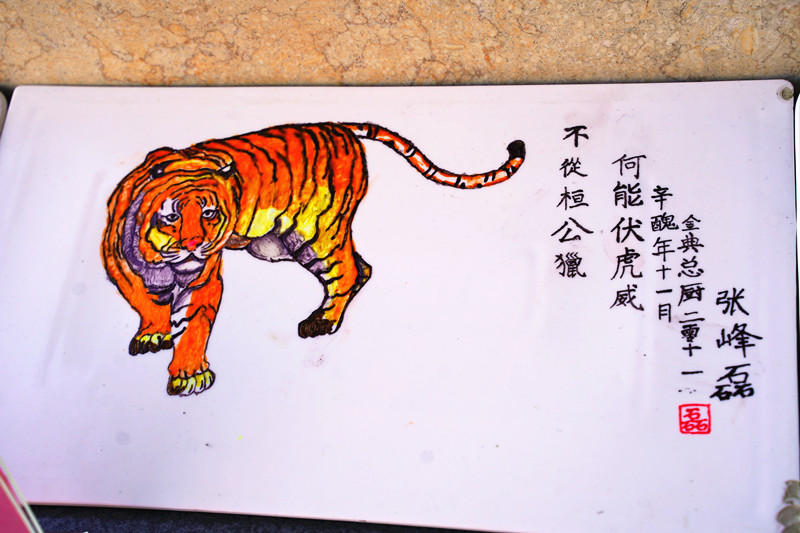 不從桓公獵
何能伏虎威
辛醜年十一月
金典总厨二零十一
张峰磊
磊